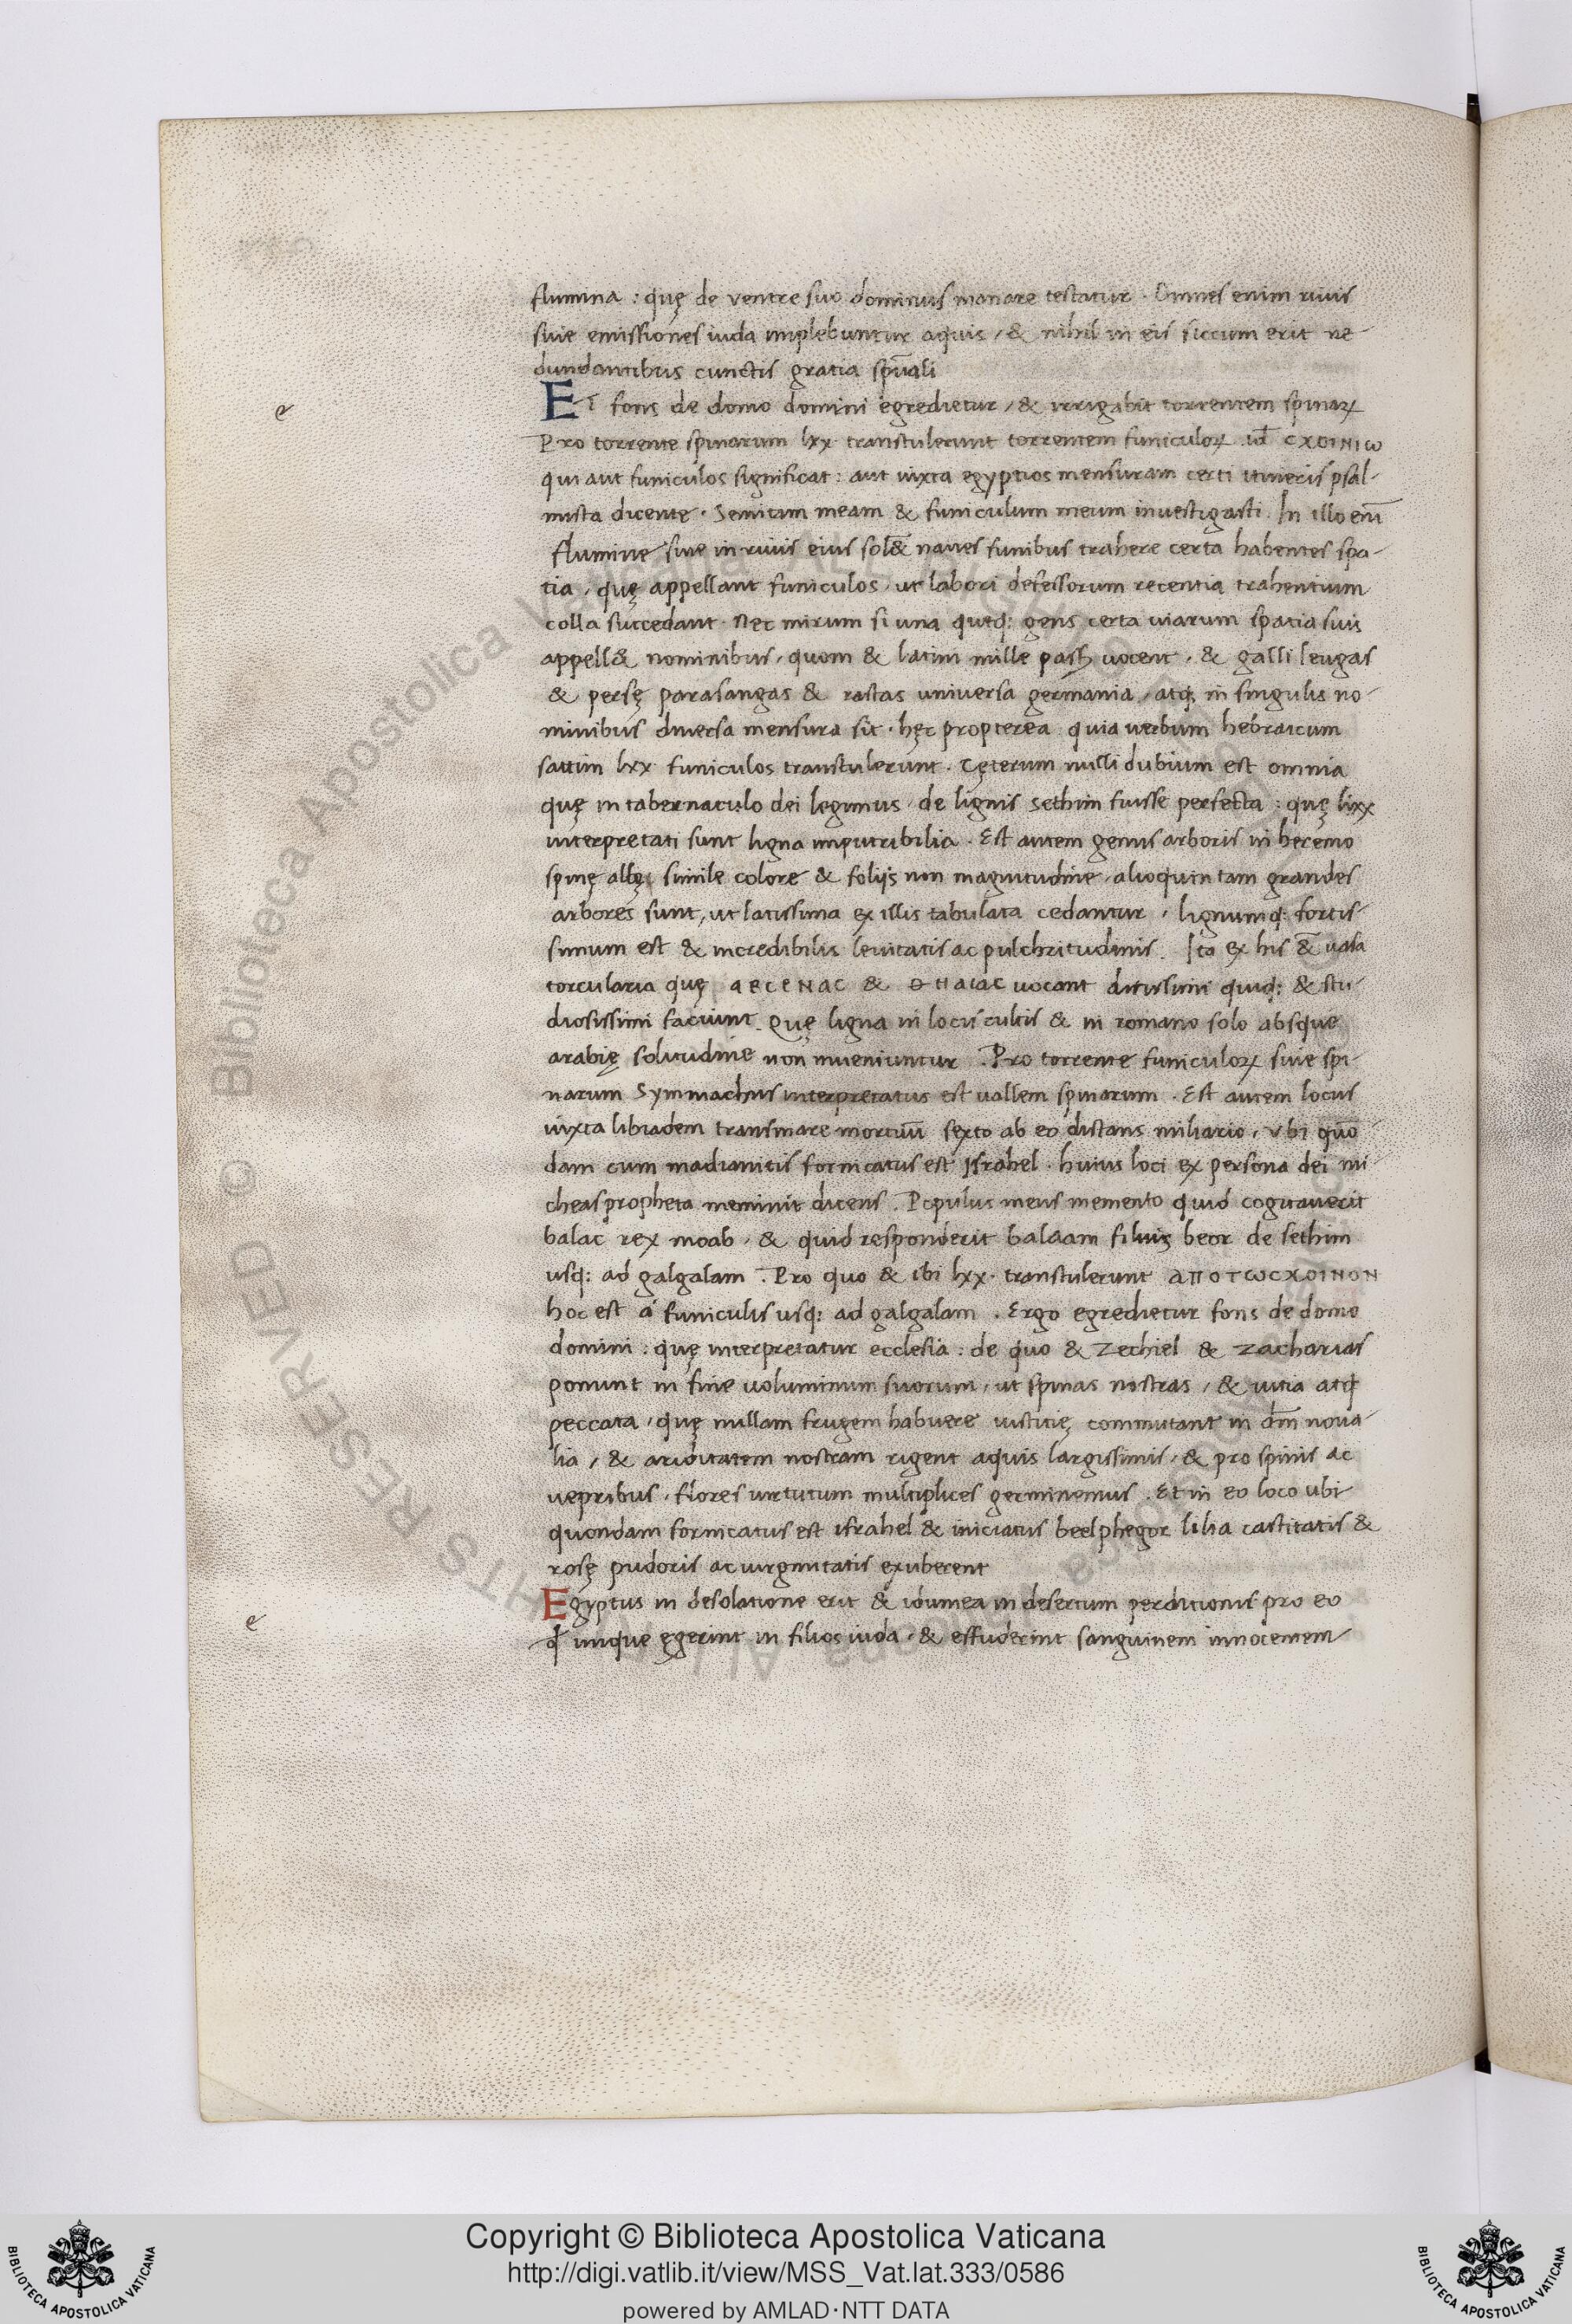 flumina : quę de ventre suo dominus manare testatur · Omnes enim riuis
siue emissiones iuda implebuntur aquis / & nihil in eis siccum erit re-
dundantibus cunctis gratia spũali
Et fons de domo domini egredietur / & irrigabit torrentem spinaꝝ
Pro torrente spinarum lxx transtulerunt torrentem funiculoꝝ .id̄ CXOINIω
qui aut funiculos significat : aut iuxta egyptios mensuram certi itineris psal-
mista dicente · Semitam meam & funiculum meum inuestigasti . In illo enī
flumine siue in riuis eius sol& naues funibus trahere certa habentes spa-
tia / quę appellant funiculos / ut labori defessorum recentia trahentium
colla succedant · Nec mirum si una quęq: gens certa uiarum spatia suis
appell& nominibus / quom & latini mille pass; uocent / & galli leugas
& persę parasangas & rastas universa germania / atq; in singulis no-
minibus diuersa mensura sit · hęc propterea quia verbum hebraicum
sattim lxx funiculos transtulerunt . Cęterum nulli dubium est omnia
quę in tabernaculo dei legimus / de lignis sethim fuisse perfecta : quę lxx
interpretati sunt ligna imputribilia . Est autem genus arboris in heremo
spinę albę simile colore & foliis non magnitudine / alioquin tam grandes
arbores sunt / ut latissima ex illis tabulata cedantur / lignumq: fortis-
simum est & incredibilis leuitatis ac pulchritudinis . Ita ex his & uasa
torcularia quę ΑΕCΕΝΑC & ΘΗΑΙΑC uocant ditissimi quiq: & stu-
diosissimi faciunt . Quę ligna in locis cultis & in romano solo absque
arabię solitudine non inueniuntur . Pro torrente funiculoꝝ siue spi-
narum Symmachus interpretatus est uallem spinarum . Est autem locus
iuxta libiadem trans mare mortuū sexto ab eo distans miliario / ubi quō
dam cum madianitis fornicatus est Israhel . huius loci ex persona dei mi-
cheas propheta meminit dicens . Populus meus memento quid cogitauerit
balac rex moab / & quid responderit balaam filius beor de sethim
usq: ad galgalam . Pro quo & ibi lxx · transtulerunt ΑΠΟΤωCΧΟΙΝΟΝ
hoc est á funiculis usq: ad galgalam . Ergo egredietur fons de domo
domini : quę interpretatur ecclesia : de quo & Zechiel & Zacharias
ponunt in fine uoluminum suorum / ut spinas nostras / & uitia atq̄
peccata / quę nullam frugem habuere iustitię commutant in dn̄i noua-
lia / & ariditatem nostram rigent aquis largissimis / & pro spinis ac
uepribus / flores uirtutum multiplices germinemus . Et in eo loco ubi
quondam fornicatus est israhel & iniciatus beelphegor lilia castitatis &
rosę pudoris ac uirginitatis exuberent
Egyptus in desolatione erit & idumea in desertum perditionis pro eo
q̄ inique egerint in filios iuda / & effuderint sanguinem innocentem
e
e
Copyright © Biblioteca Apostolica Vaticana
http://digi.vatlib.it/view/MSS_Vat.lat.333/0586
powered by AMLAD·NTT DATA
BIBLIOTECA APOSTOLICA VATICANA
BIBLIOTECA APOSTOLICA VATICANA